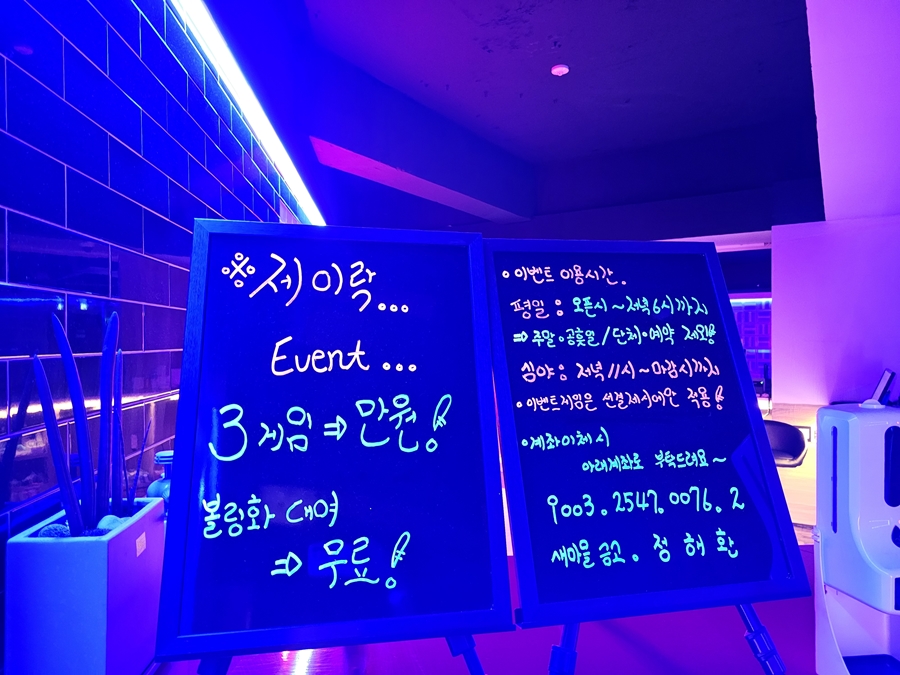 ※저이락...
Event...
3게임 ⇒ 만원!
볼링화 대여
⇒ 무료!
° 이벤트 이용시간.
평일 : 오픈시 ~ 저녁 6시까지
⇒ 주말 · 공휴일 / 단체 · 예약 제외!
심야 : 저녁 11시 ~ 마감시까지
° 이벤트게임은 선결제시에만 적용!
° 계좌이체 시
아래계좌로 부탁드려요~
9003.2547.0076.2
새마을 금고. 정허환